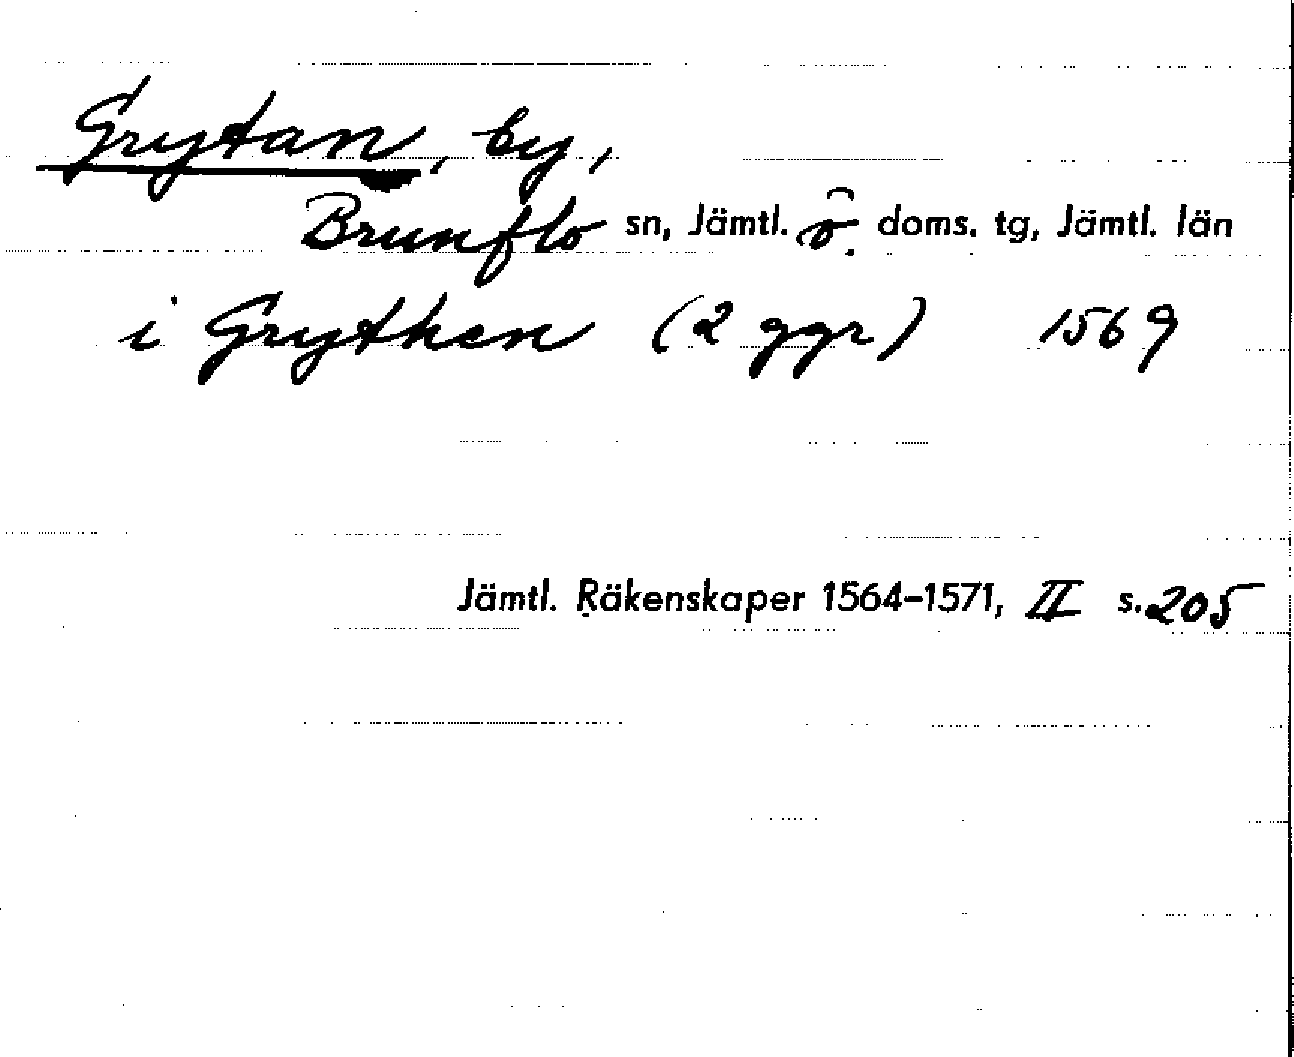 Grytan, by,
Brunflo sn, Jämtl. ö. doms. tg, Jämtl. län
i Grythen (2 ggr) 1569
Jämtl. Räkenskaper 1564-1571, II s. 205